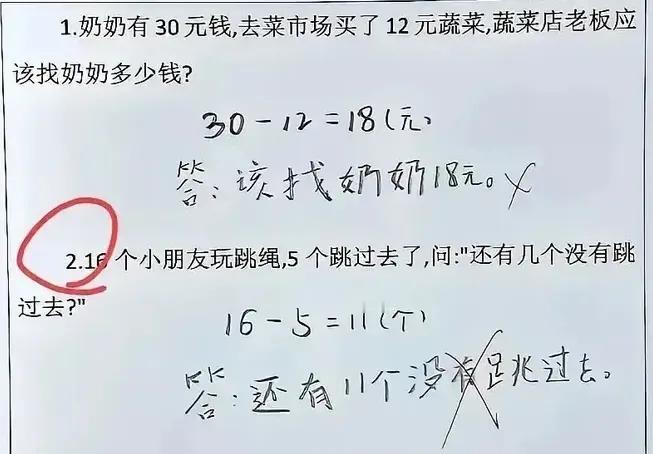 1.奶奶有 30 元钱,去菜市场买了 12 元蔬菜,蔬菜店老板应
该找奶奶多少钱?
30-12=18(元)
答:该找奶奶18元。
2.16 个小朋友玩跳绳,5 个跳过去了,问:"还有几个没有跳
过去?"
16-5=11(个)
答:还有11个没有跳过去。